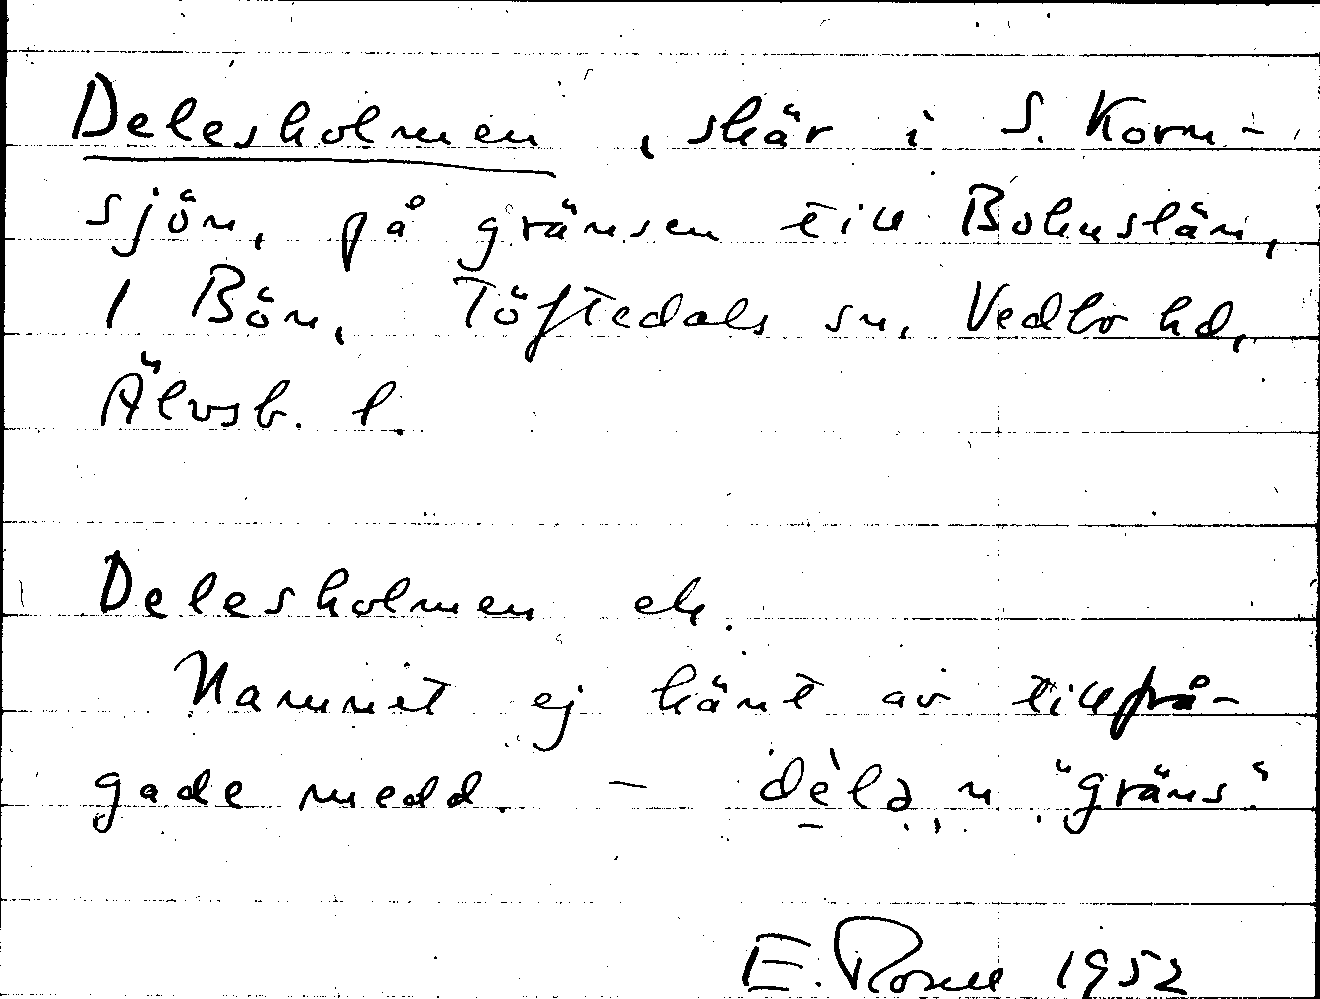 Delesholmen, skär i S. Korn-
sjön, på gränsen till Bohuslän,
1 Bön, Töftedals sn, Vedbo hd,
Älvsb. l.
Delesholmen ek.
Namnet ej känt av tillfrå-
gade medd. – dèlə, n "gräns"
E. Rosell 1952